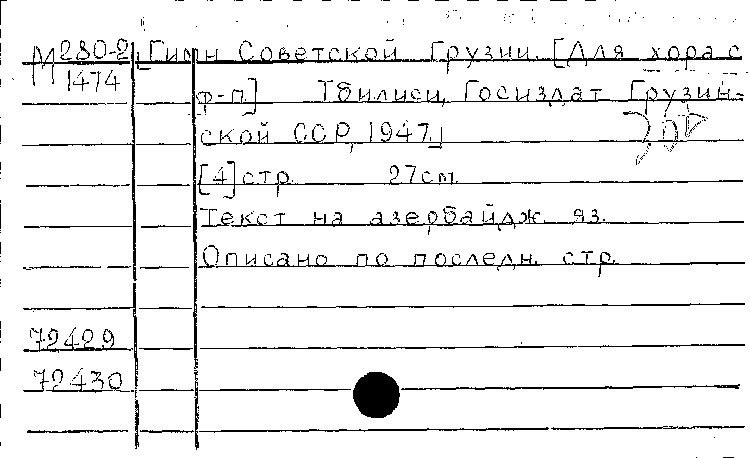 М 280-2 [Гимн Советской Грузии. [Для хора с
1474
ф-п.] Тбилиси, Госиздат Грузин-
ской ССР, 1947.]
[4] стр. 27 см.
Текст на азербайдж. яз.
Описано по последн. стр.
72429
72430